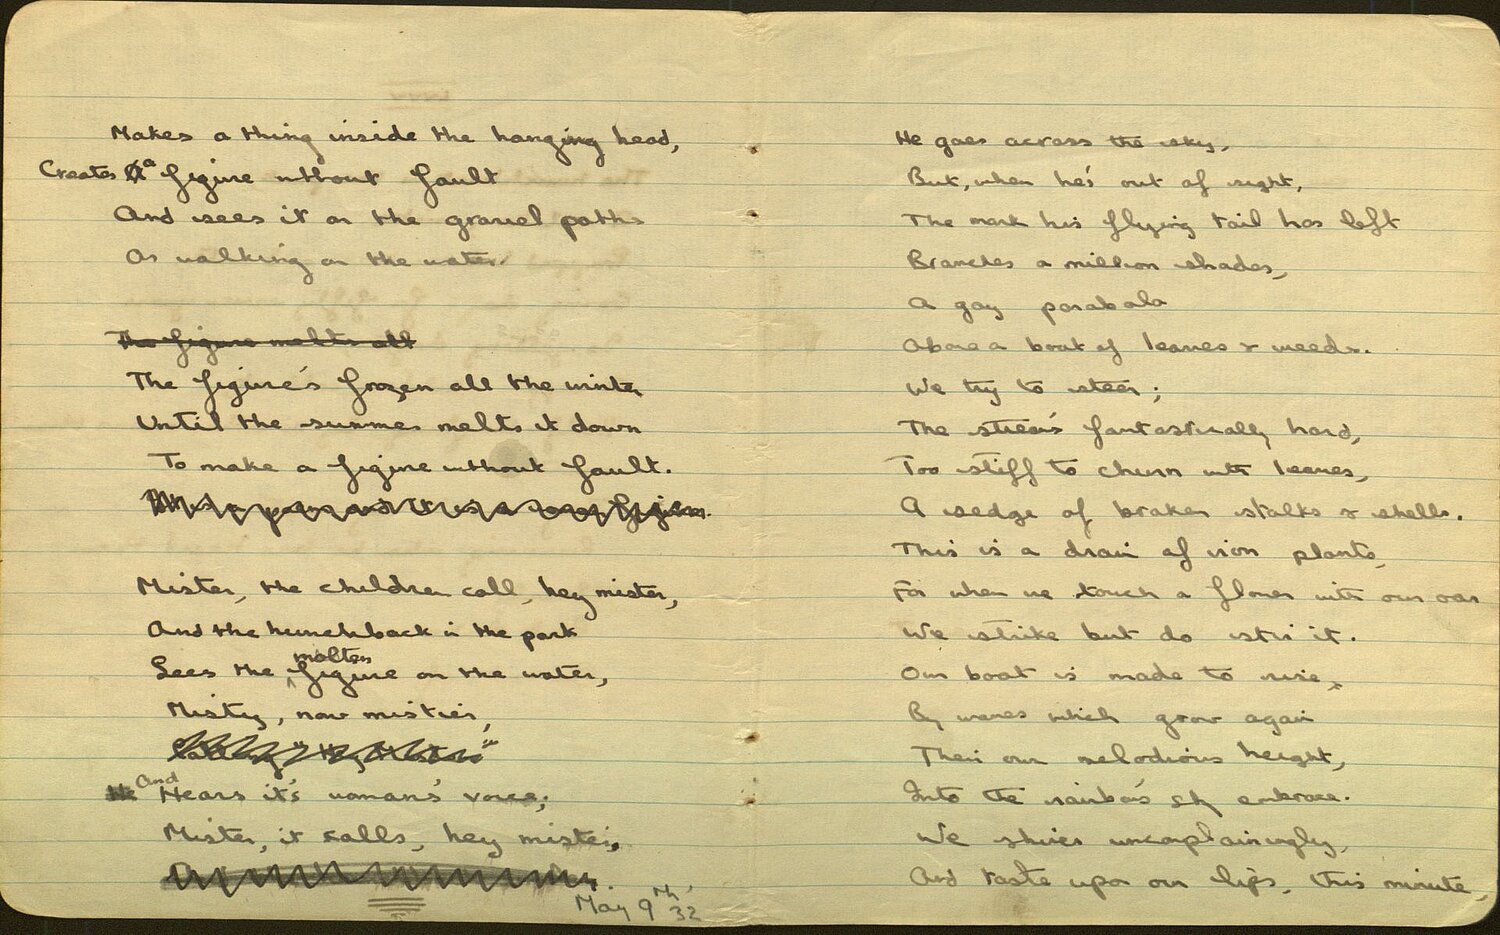 Makes a thing inside the hanging head,
Creates a figure without fault
And sees it on the gravel paths
Or walking on the water.
The figure melts all
The figure's frozen all the winter
Until the summer melts it down
To make a figure without fault.
Mister, the children call, hey mister,
And the hunchback in the park
Sees the molten figure on the water,
Misty, now mistier,
And Hears it's woman's voice;
Mister, it calls, hey mister,
May 9th '32
He goes across the sky,
But, when he's out of sight,
The mark his flying tail has left
Branches a million shades,
A gay parabola
Above a boat of leaves & weeds.
We try to steer;
The stream's fantastically hard,
Too stiff to churn with leaves,
A sedge of broken stalks & shells.
This is a drain of iron plants,
For when we touch a flower with our oar
We strike but do stir it.
Our boat is made to rise,
By waves which grow again
Their own melodious height,
Into the rainbow's shy embrace.
We shiver uncomplainingly,
And taste upon our lips, this minute,